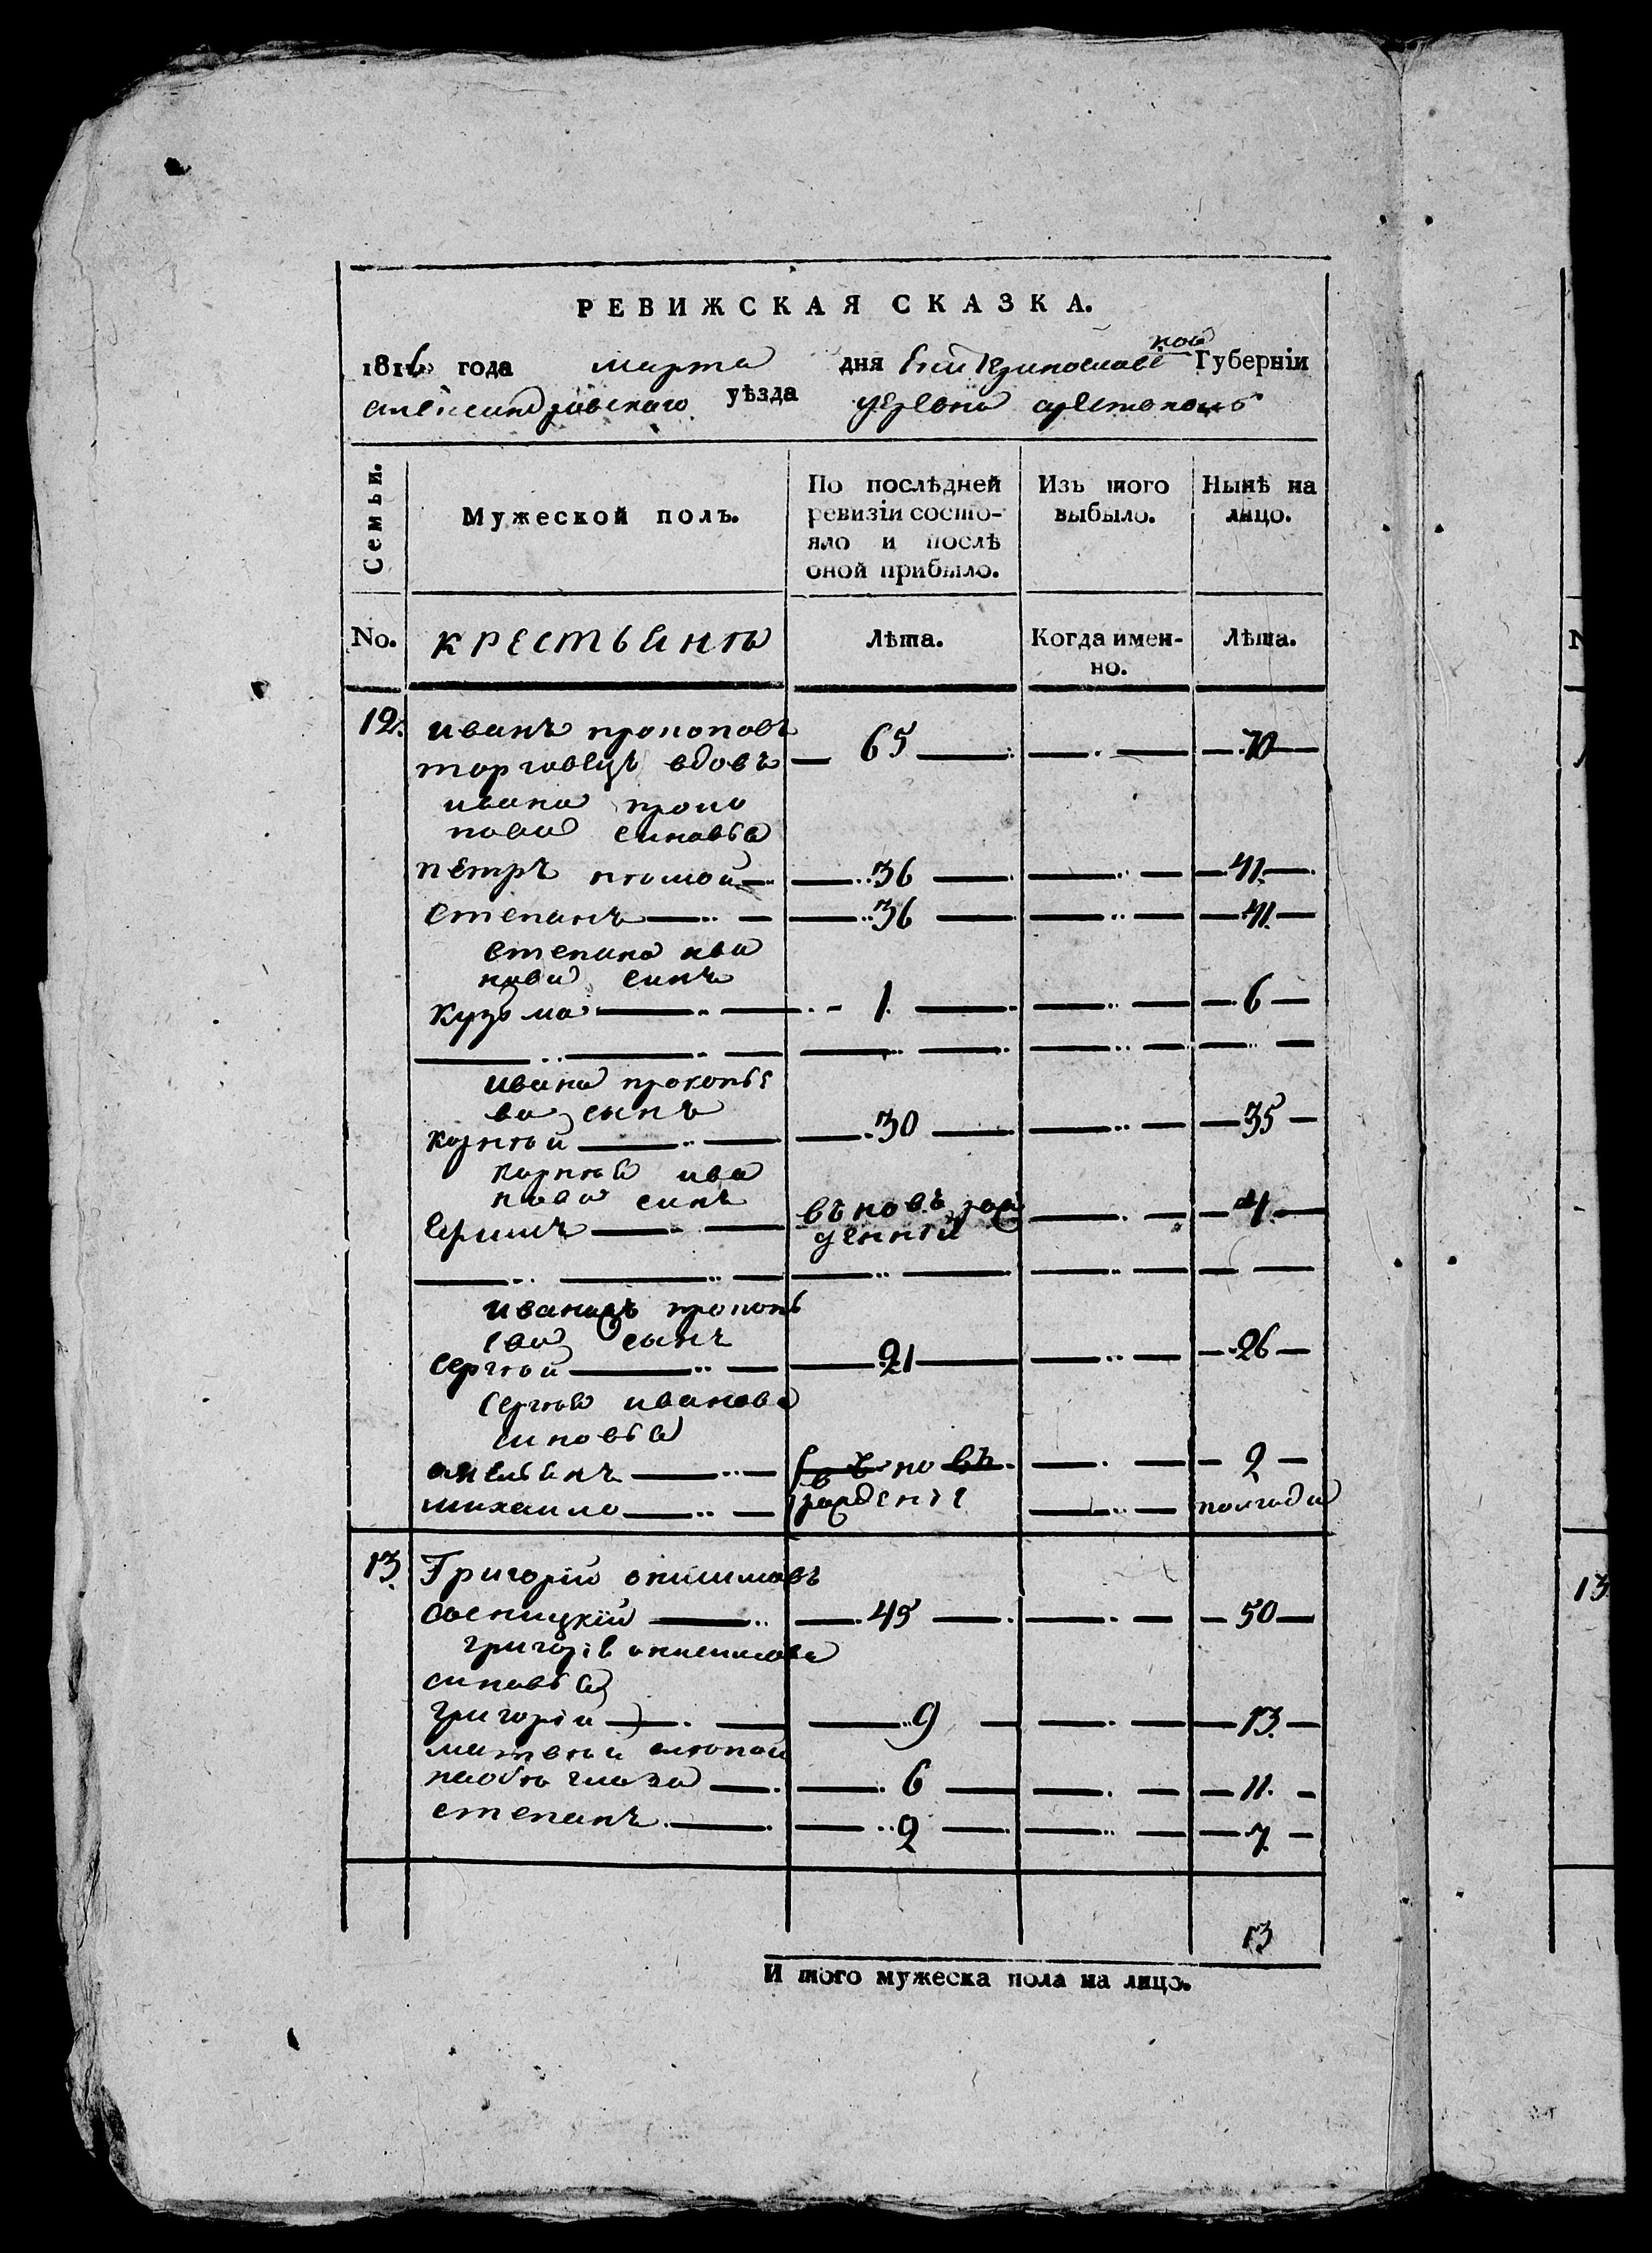 РЕВИЖСКАЯ СКАЗКА.
1816 года марта дня Екатеринославской Губерніи
александровскаго уѣзда деревни
Семьи.
Мужеской полъ.
По послѣдней ревизіи состояло и послѣ оной прибыло.
Изъ того выбыло.
Нынѣ на лицо.
No. крестьянъ Лѣта. Когда именно. Лѣта.
12. иванъ прокоповъ
торговецъ вдовъ — 65 — — 70
ивана проко
пова синовья
петръ — 36 — — 41
степанъ — 36 — — 41
степана ива
нова синъ
кузьма — 1 — — 6
ивана прокопье
ва сынъ
корнѣй — 30 — — 35
корнѣя ива
нова синъ
въновь рож
денній — 4
прокопь
ева сынъ
сергѣй — 21 — — 26
сергѣя иванова
синовья
въ новь — 2
михаило — рожденіе — полгода
13. Григорій онисимовъ
— 45 — — 50
григорія онисимова
синовья
григорій — 9 — — 13
матвѣй слѣпой
на обѣ глаза — 6 — — 11
степанъ — 2 — — 7
13
И того мужеска пола на лицо.
13